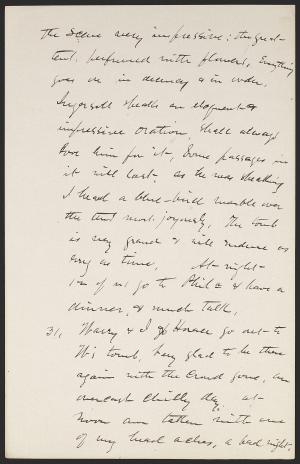 the scene very impressive; the great
tent, perfumed with flowers, Everything
goes on in decency & in order.
Ingersoll speaks an eloquent &
impressive oration, shall always
love him for it, Some passages in
it will last. as he was speaking
I heard a blue-bird warble over
the tent most joyously. The tomb
is very grand & will endure as
long as time. At night
of us go to Phila & have a
dinner, & much talk.
31, Harry & I & Horace go out to
W's tomb, very glad to be there
again with the crowd gone, an
overcast chilly day, at
noon am taken with one
of my head aches, a bad night.